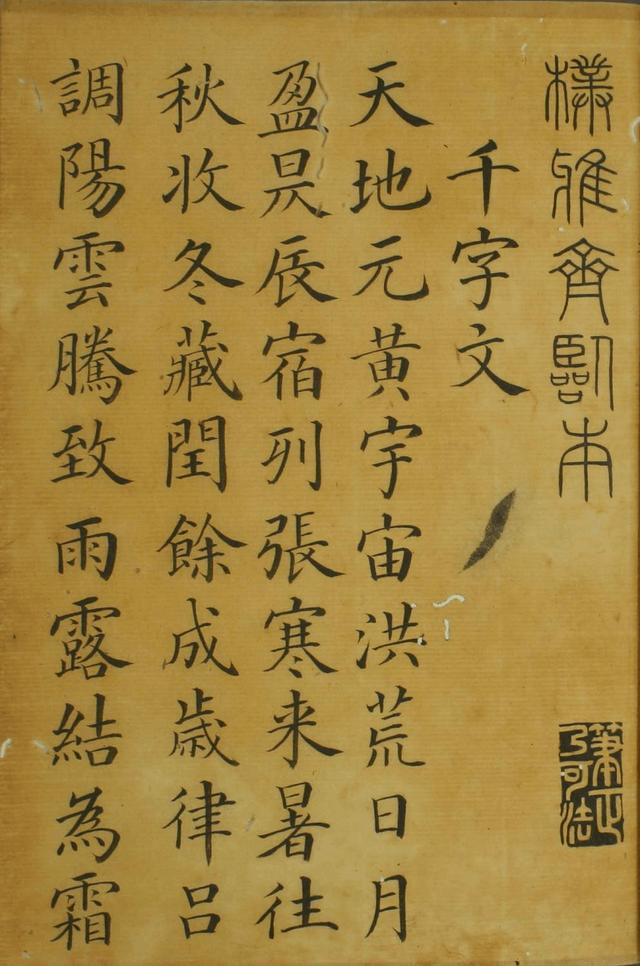 樸雅齊臨本
筆正乃可法
千字文
天地元黄宇宙洪荒日月
盈昃辰宿列張寒来暑往
秋收冬藏閏餘成歲律吕
調陽雲騰致雨露結為霜